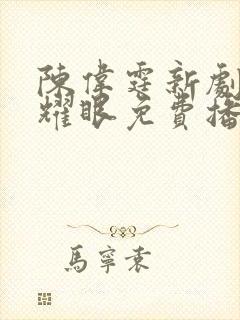 陳偉霆新劇
耀眼免費播
馬寧素